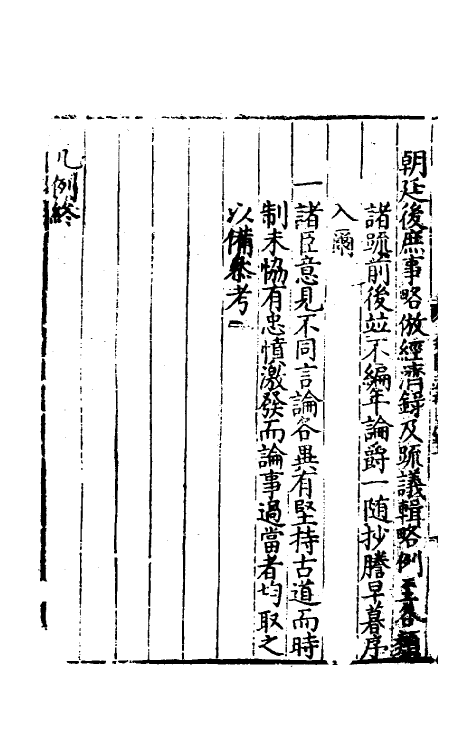 朝廷後庶事略倣經濟錄及疏議輯略例至各類
諸疏前後竝不編年論爵一隨抄謄早暮序
入爾
一諸臣意見不同言論各異有堅持古道而時
制未協有忠憤激發而論事過當者均取之
以備叅考
凡例終